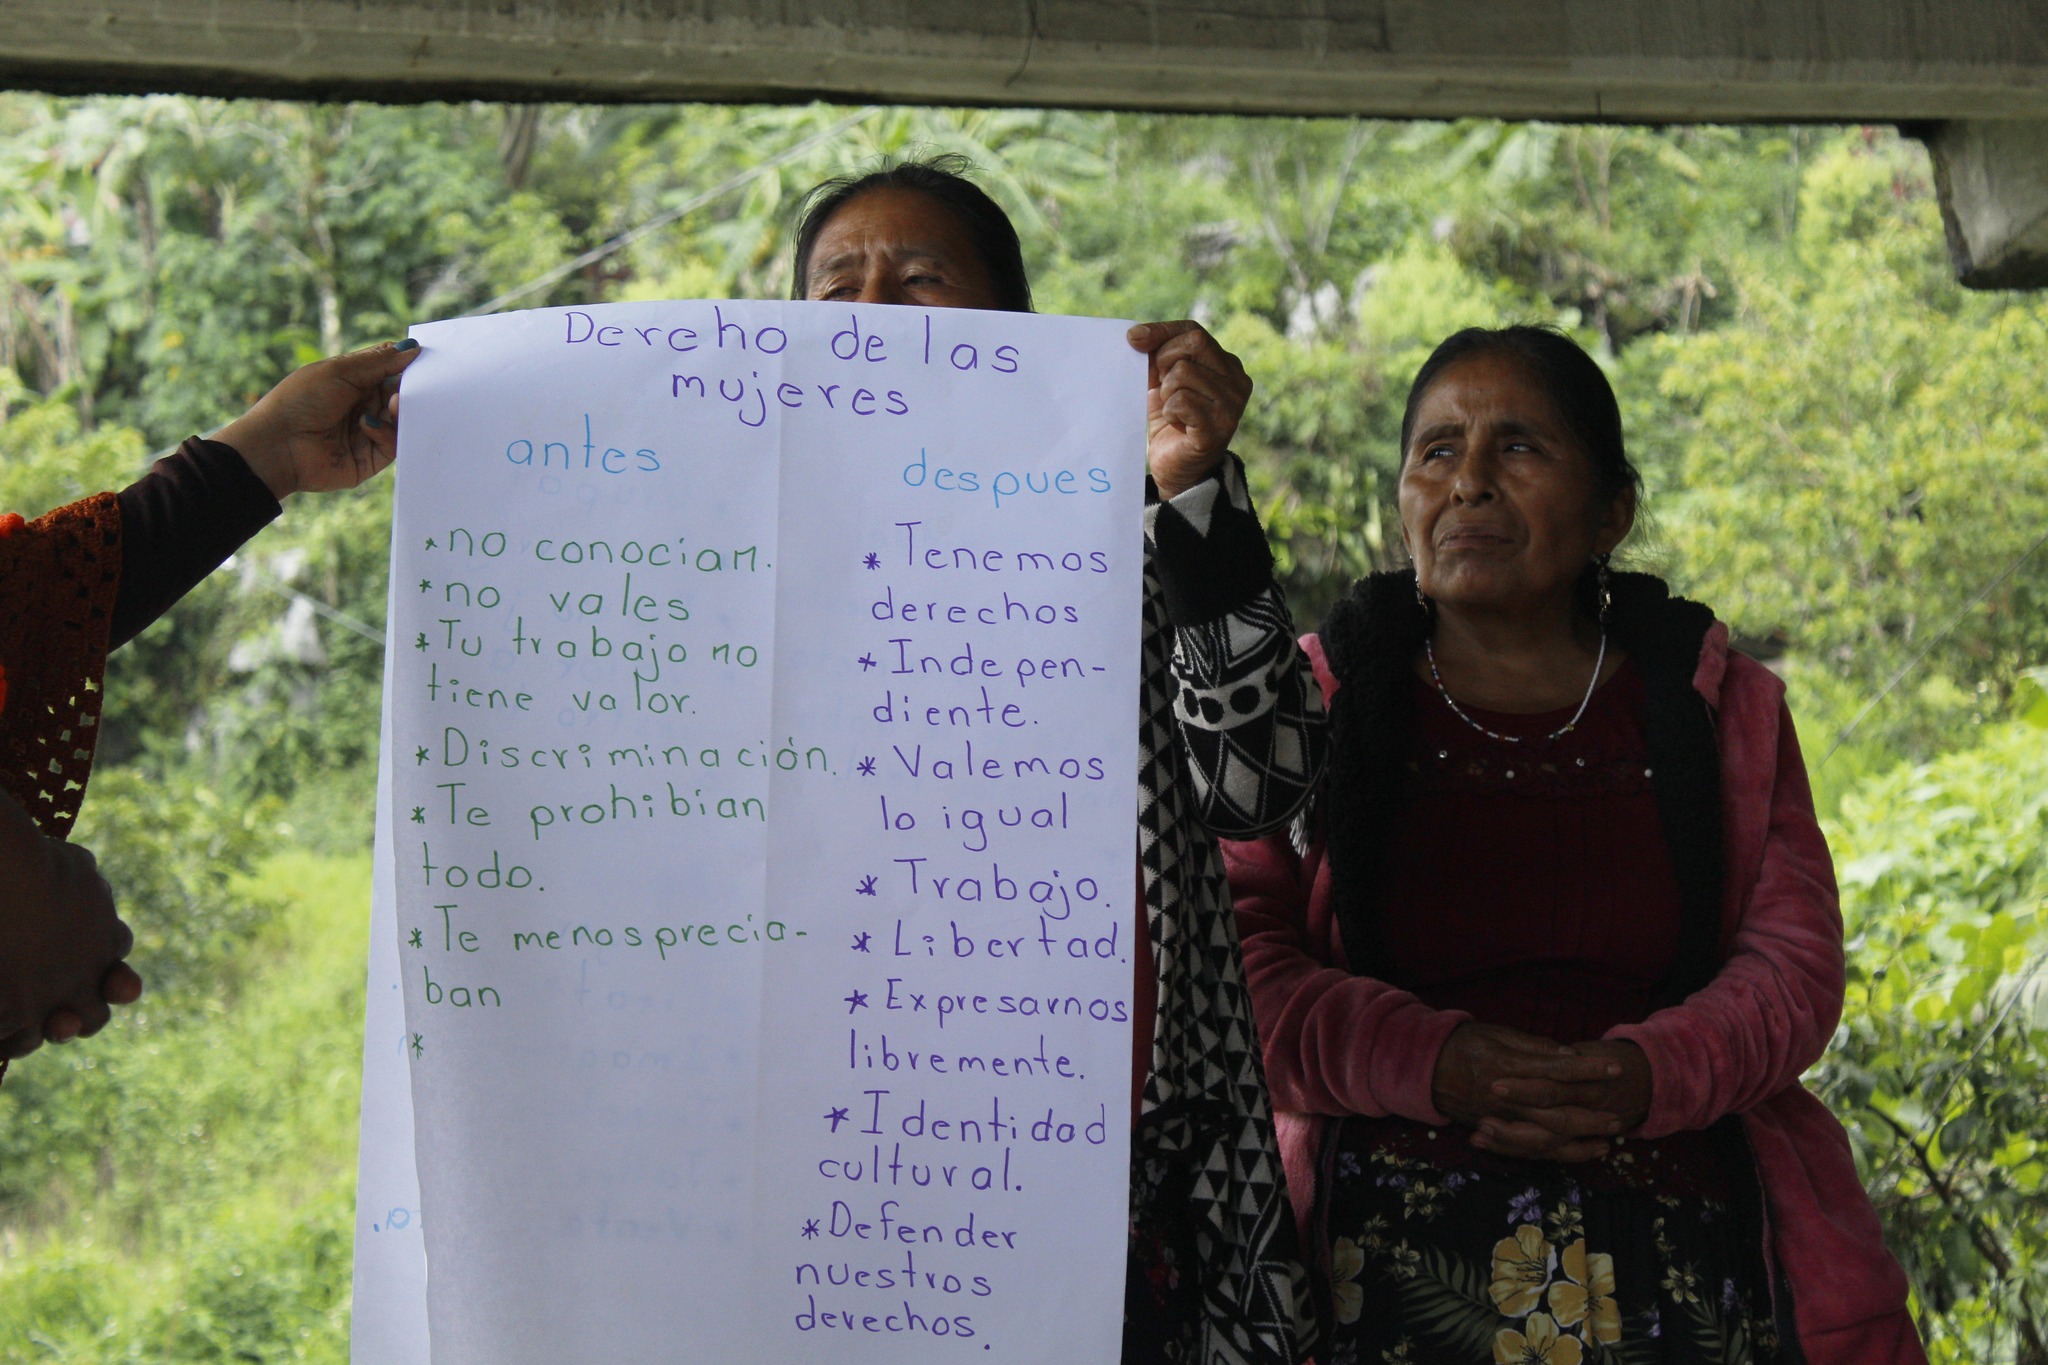 Derecho de las
mujeres
antes
* no conocian.
* no vales
* Tu trabajo no
tiene valor.
* Discriminación.
* Te prohibian
todo.
* Te menosprecia-
ban
*
despues
* Tenemos
derechos
* Indepen-
diente.
* Valemos
lo igual
* Trabajo.
* Libertad.
* Expresarnos
libremente.
* Identidad
cultural.
* Defender
nuestros
derechos.